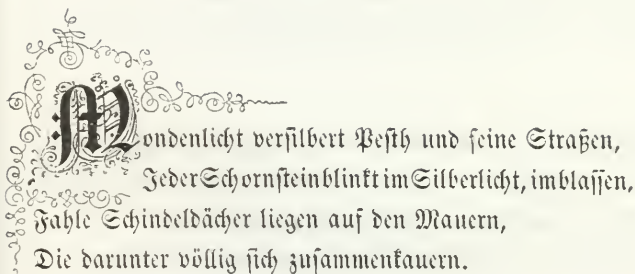 Mondenlicht versilbert Pesth und seine Straßen,
Jeder Schornstein blinkt im Silberlicht, im blassen,
Fahle Schindeldächer liegen auf den Mauern,
Die darunter völlig sich zusammenkauern.